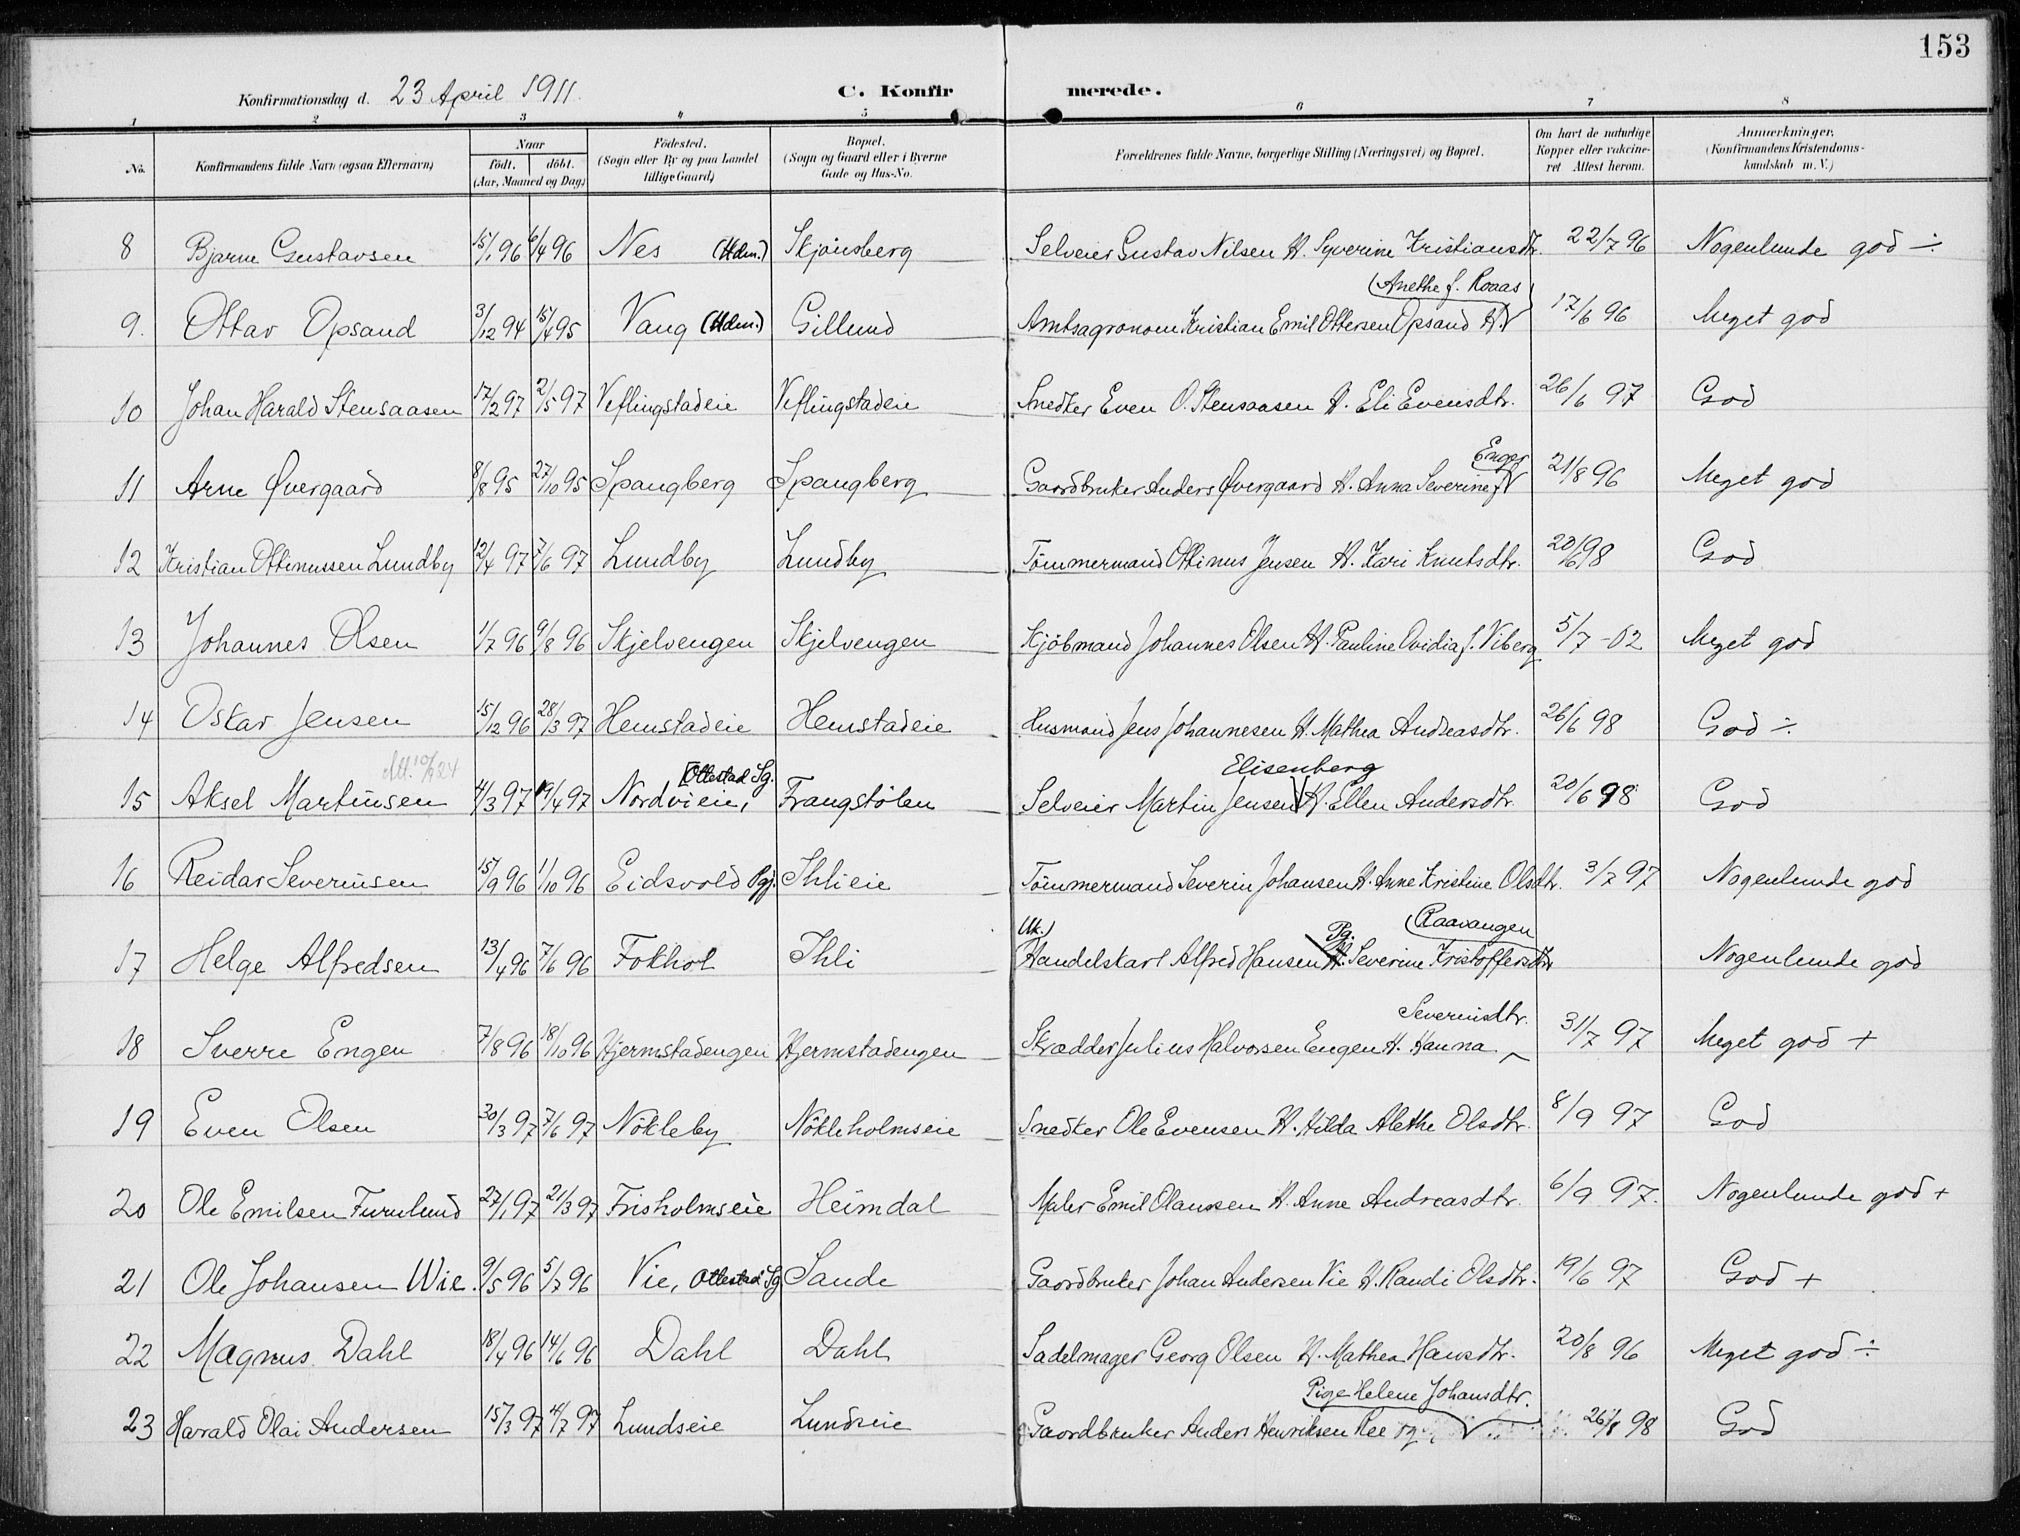 153
Konfirmationsdag d. 23 April 1911. C. Konfirmerede.
1 2 3 4 5 6 7 8
No. Konfirmandens fulde Navn (ogsaa Efternavn) Naar født. døbt. (Aar, Maaned og Dag.) Fødested. (Sogn eller By og paa Landet tillige Gaard) Bopæl. (Sogn og Gaard eller i Byerne Gade og Hus-No. Forældrenes fulde Navne, borgerlige Stilling (Næringsvei) og Bopæl. Om havt de naturlige Kopper eller vakcineret Attest herom. Anmærkninger. (Konfirmandens Kristendomskundskab m. V.)
8 Bjarne Gustavsen 15/1 96 6/4 96 Nes (Hdm.) Skjønsberg Selveier Gustav Nilsen H. Syverine Kristiansdtr. 22/7 96 Nogenlunde god ÷
9. Ottar Opsand 3/12 94 15/4 95 Vang (Hdm.) Gillund Amtsagronom Kristian Emil Ottersen Opsand H. Anethe f. Roaas 17/6 96 Meget god
10 Johan Harald Stensaasen 17/2 97 2/5 97 Veflingstadeie Veflingstadeie Snedker Even O. Stensaasen H. Eli Evensdtr. 26/6 97 God
11 Arne Øvergaard 8/8 95 27/10 95 Spangberg Spangberg Gaardbruker Anders Øvergaard H. Anna Severine f. Enger 21/8 96 Meget god
12 Kristian Ottinussen Lundby 12/4 97 7/6 97 Lundby Lundby Tømmermand Ottinus Jensen H. Kari Knutsdtr. 20/6 98 God
13 Johannes Olsen 1/7 96 9/8 96 Skjelvengen Skjelvengen Kjøbmand Johannes Olsen H. Pauline Ovidia f. Viberg 5/7 -02 Meget god
14 Oskar Jensen 15/12 96 28/3 97 Hemstadeie Hemstadeie Husmand Jens Johannesen H. Mathea Andreasdtr. 26/6 98 God ÷
15 Aksel Martinsen 4/3 97 19/4 97 Nordvieie, Ottestad Sg. Frangstølen Selveier Martin Jensen Elisenberg H. Ellen Andersdtr. 20/6 98 God
16 Reidar Severinsen 15/9 96 1/10 96 Eidsvold Pgj. Ihlieie Tømmermand Severin Johansen H. Anne Kristine Olsdtr. 3/7 97 Nogenlunde god
17 Helge Alfredsen 13/4 96 7/6 96 Fokhol Ihli Uk.) Handelskarl Alfred Hansen Pg. Severine Kristoffersdtr (Raavangen Nogenlunde god
18 Sverre Engen 7/8 96 18/10 96 Hjermstadengen Hjermstadengen Skrædder Julius Halvorsen Engen H. Hanna Severinsdtr. 31/7 97 Meget god +
19 Even Olsen 30/3 97 7/6 97 Nøkleby Nøkleholmseie Snedker Ole Evensen H. Hilda Alethe Olsdtr. 8/9 97 God
20 Ole Emilsen Furulund 27/1 97 21/3 97 Frisholmseie Heimdal Maler Emil Olaussen H. Anne Andreasdtr. 6/9 97. Nogenlunde god +
21 Ole Johansen Wie. 9/5 96 5/7 96 Vie, Ottestad Sg Sande Gaardbruker Johan Andersen Vie H. Randi Olsdtr. 19/6 97 God +
22 Magnus Dahl 18/4 96 14/6 96 Dahl Dahl Sadelmager Georg Olsen H. Mathea Hansdtr. 20/8 96 Meget god ÷
23 Harald Olai Andersen 15/3 97 4/7 97 Lundseie Lundseie Gaardbruker Anders Henriksen Ree og Pige Helene Johansdtr. 26/8 98 God